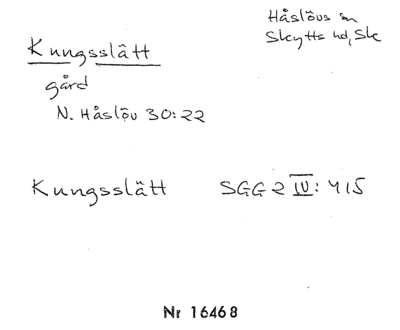 Håslövs sn
Skytts hd, Sk
Kungsslätt
gård
N. Håslöv 30:22
Kungsslätt SGG 2 IV: 415
Nr 16468